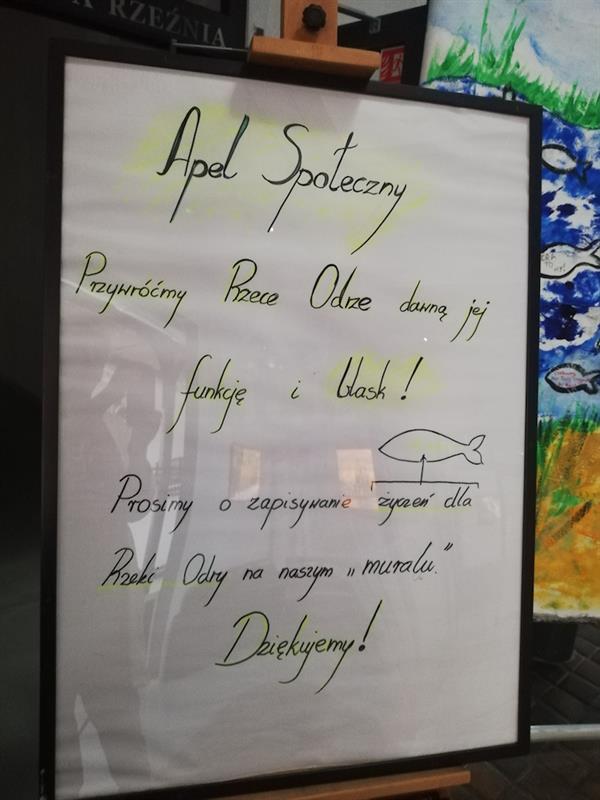 A RZEŹNIA
Apel Społeczny
Przywróćmy Rzece Odrze dawną jej
funkcję i blask!
Prosimy o zapisywanie życzeń dla
Rzeki Odry na naszym „muralu."
Dziękujemy!